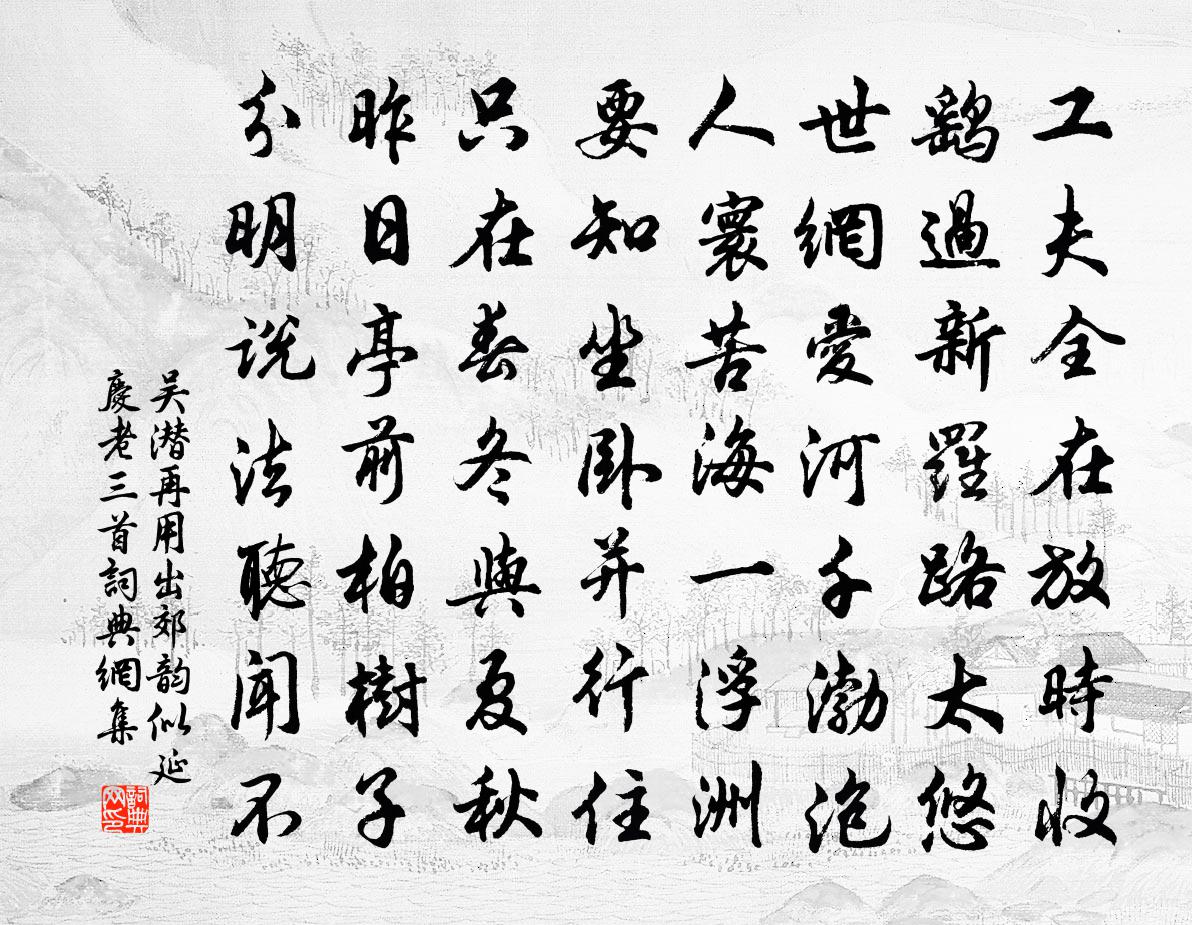 工夫全在放時收
鷂過新羅路太悠
世網愛河千渤泡
人寰苦海一浮洲
要知坐臥并行住
只在春冬與夏秋
昨日亭前柏樹子
分明説法聽聞不
吴潜再用出郊韵似延
慶老三首詞典網集
詞典
网印